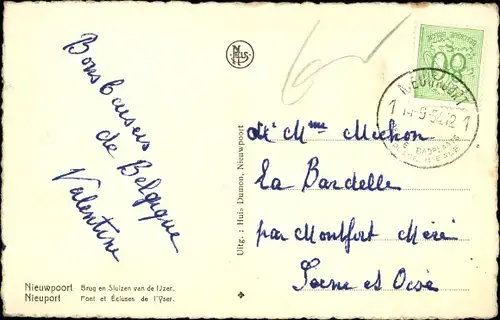 Bons baisers
de Belgique
Valentine
Nieuwpoort Brug en Sluizen van de IJzer.
Nieuport Pont et Écluses de l'Yser.
Uitg. : Huis Dumon, Nieuwpoort
NELS
BELGIQUE
NIEUWPOORT
1 12 1
Mme Michon
La Bardelle
par Montfort Méré
Seine et Oise